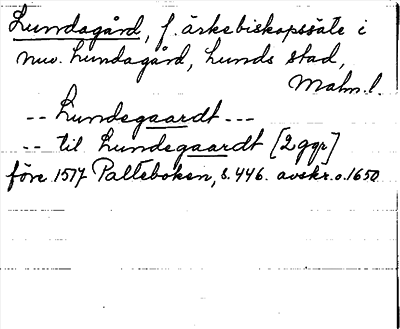 Lundagård, f. ärkebiskopssäte i
nuv. Lundagård, Lunds stad,
Malm.l.
-- Lundegaardt ---
-- til Lundegaardt [2 ggr]
före 1517 Palteboken, s. 446. avskr. o. 1650